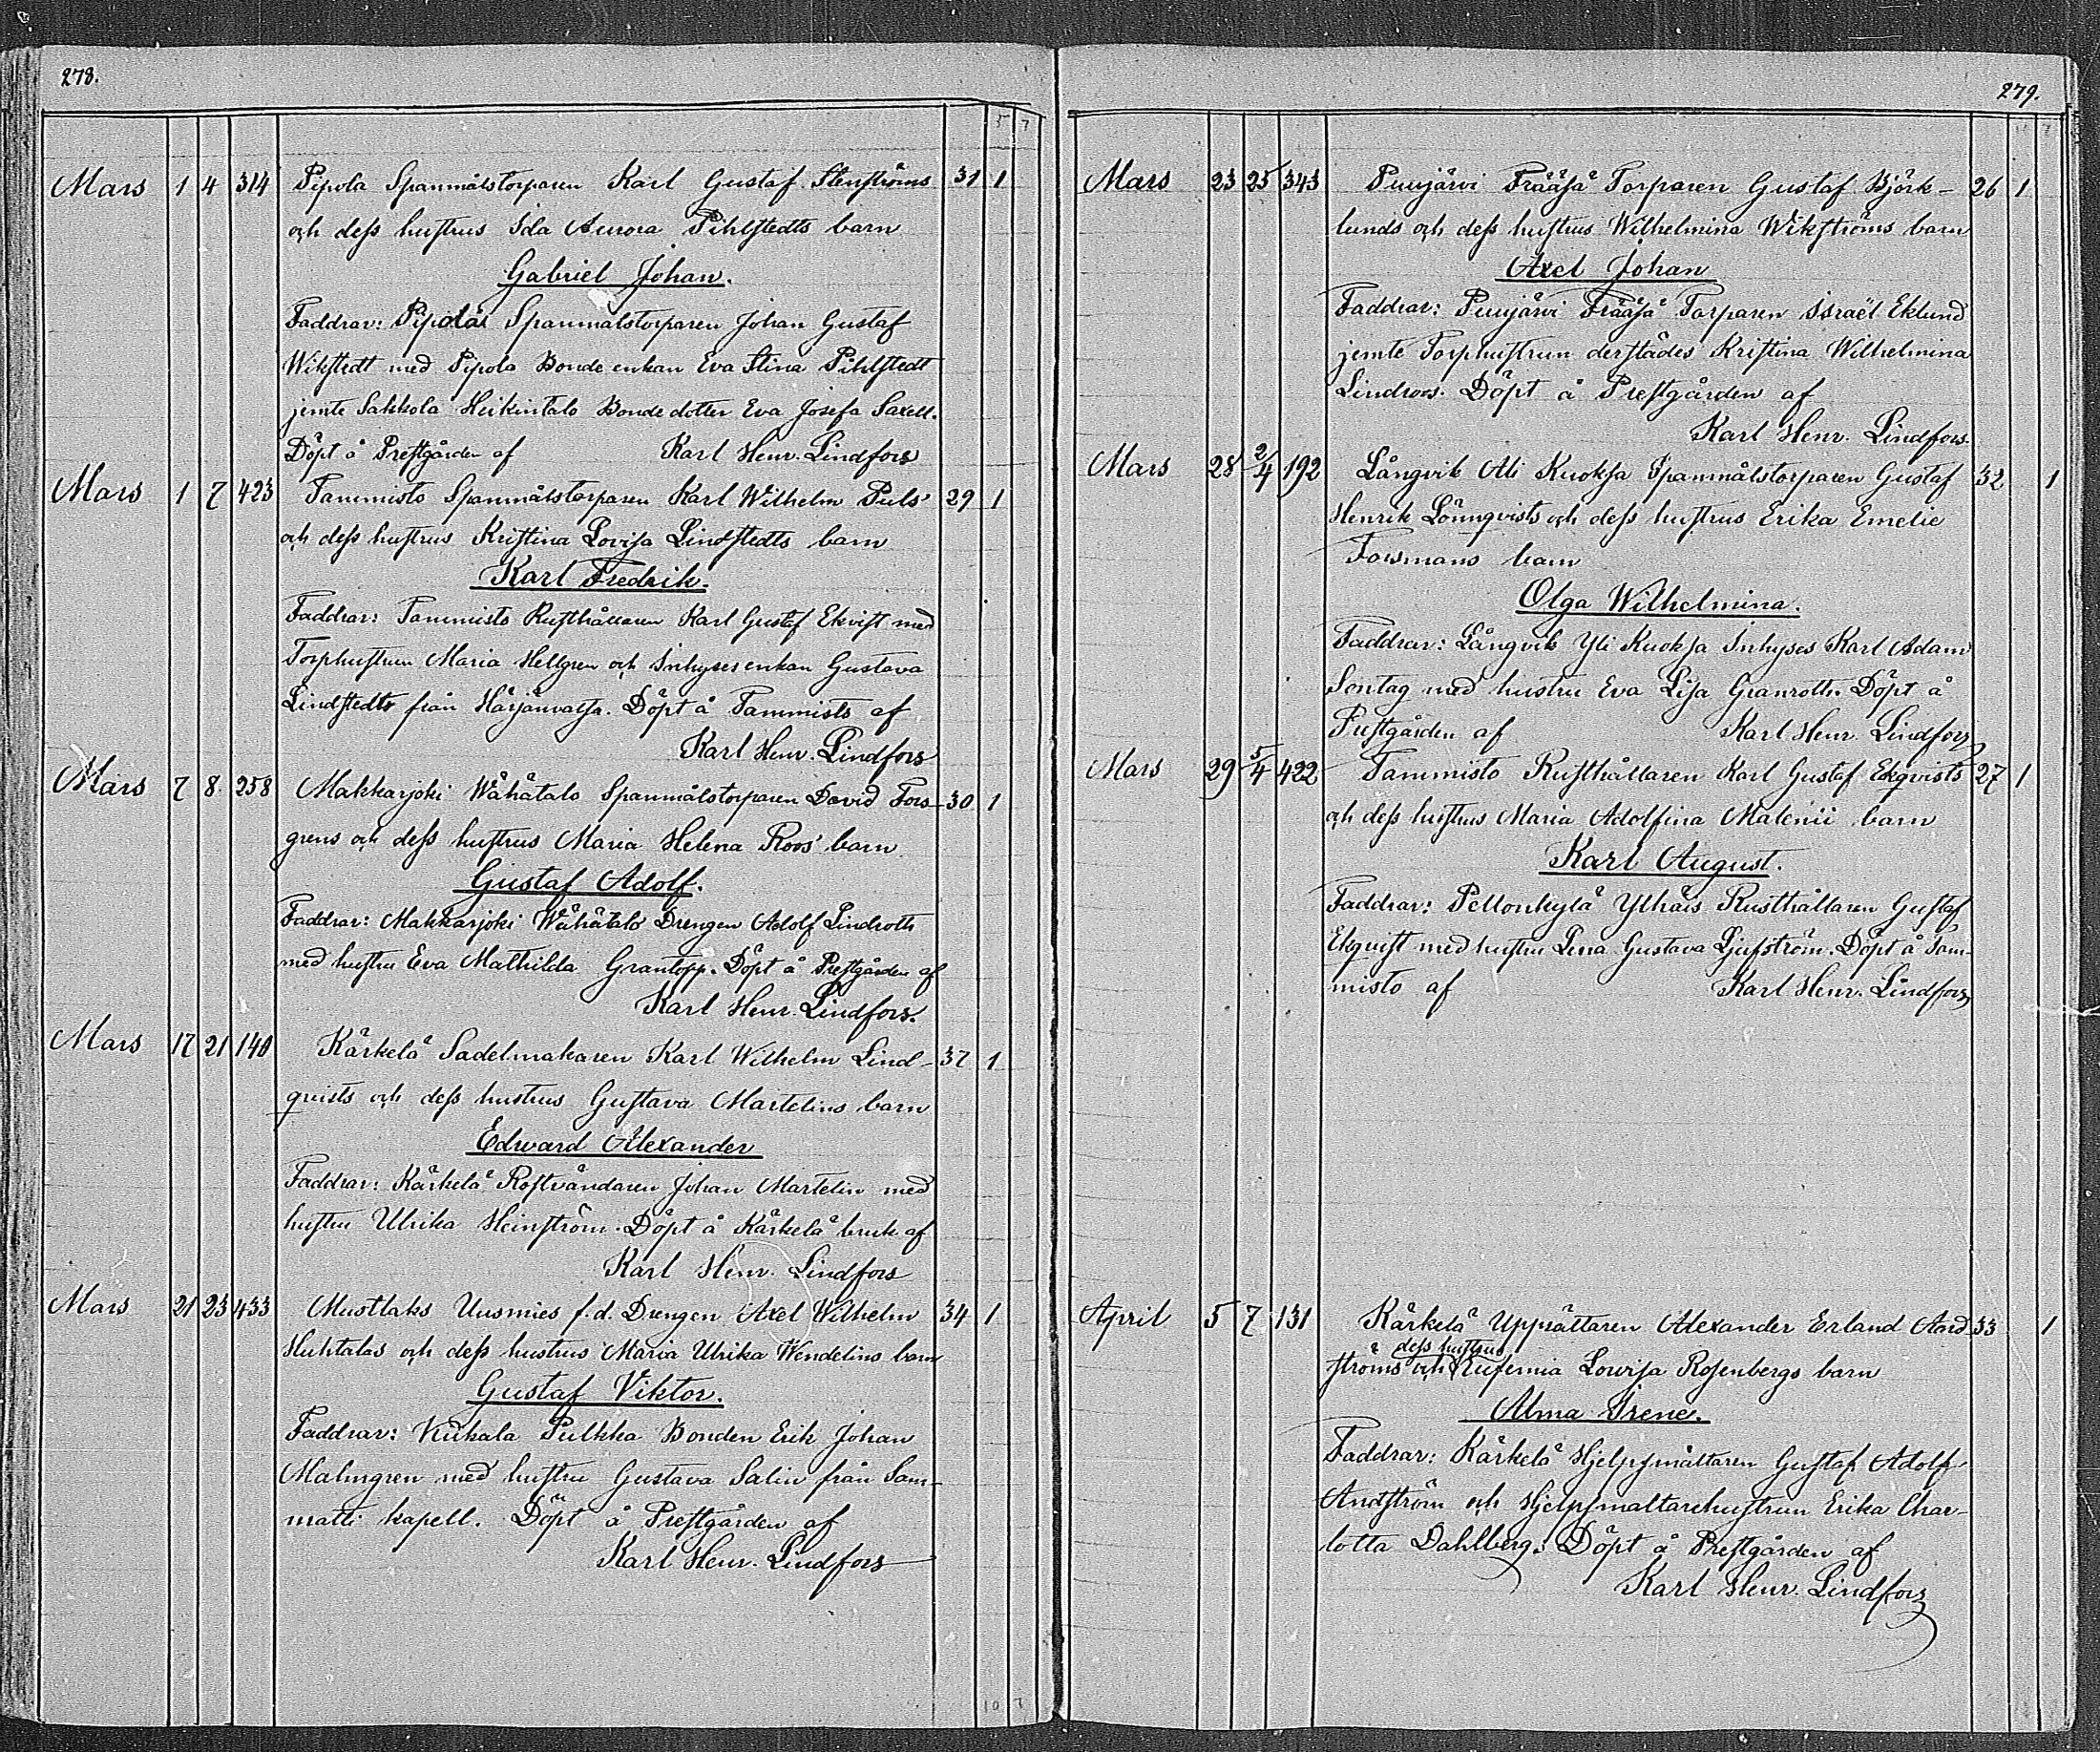 278.
Mars 1 4 314 Pipola Spanmålstorparen Karl Gustaf Stenströms 31 1
och dess hustrus Ida Aurora Pihlstedts barn
Gabriel Johan.
Faddrar: Pipola Spanmålstorparen Johan Gustaf
Wikstedt med Pipola Bonde enkan Eva Stina Pihlstedt
jemte Sakkola Heikintalo Bonde dotter Eva Josefa Saxell.
Döpt å Prestgården af Karl Henr. Lindfors
Mars 1 7 423 Tammisto Spanmålstorparen Karl Wilhelm Puls' 29 1
och dess hustrus Kristina Lovisa Lindstedts barn
Karl Fredrik.
Faddrar: Tammisto Rusthållaren Karl Gustaf Ekvist med
Torphustrun Maria Hellgren och Inhysesenkan Gustava
Lindstedt från Härjänvatsa. Döpt å Tammisto af
Karl Henr. Lindfors
Mars 7 8. 258 Makkarjoki Wähätalo Spanmålstorparen David Fors- 30 1
grens och dess hustrus Maria Helena Roos' barn
Gustaf Adolf.
Faddrar: Makkarjoki Wähätalo Drengen Adolf Lindroth
med hustru Eva Mathilda Grantopp. Döpt å Prestgården af
Karl Henr. Lindfors.
Mars 17 21 140 Kärkelä Sadelmakaren Karl Wilhelm Lind- 37 1
qvists och dess hustrus Gustava Martelins barn
Edward Alexander
Faddrar: Kärkelä Rostvändaren Johan Martelin med
hustru Ulrika Heinström. Döpt å Kärkelä bruk af
Karl Henr. Lindfors
Mars 21 23 433 Mustlaks Uusmies f.d. Drengen Axel Wilhelm 34 1
Huhtalas och dess hustrus Maria Ulrika Wendelins barn
Gustaf Viktor.
Faddrar: Niikala Pulkka Bonden Erik Johan
Malmgren med hustru Gustava Salin från Sam-
matti kapell. Döpt å Prestgården af
Karl Henr. Lindfors
279.
Mars 23 25 343 Puujärvi Frääsä Torparen Gustaf Björk- 26 1
lunds och dess hustrus Wilhelmina Wikströms barn
Axel Johan
Faddrar: Puujärvi Frääsä Torparen Israël Eklund
jemte Torphustrun derstädes Kristina Wilhelmina
Lindroos. Döpt å Prestgården af
Karl Henr. Lindfors.
Mars 28 2/4 192 Långvik Ali Kuoksa Spanmålstorparen Gustaf 32 1
Henrik Lönnqvists och dess hustrus Erika Emelie
Forsmans barn
Olga Wilhelmina.
Faddrar: Långvik Yli Kuoksa Inhyses Karl Adam
Sontag med hustru Eva Lisa Granroth. Döpt å
Prestgården af Karl Henr. Lindfors
Mars 29 5/4 422 Tammisto Rusthållaren Karl Gustaf Ekqvists 27 1
och dess hustrus Maria Adolfina Malenii barn
Karl August.
Faddrar: Pellonkylä Ylhäis Rusthållaren Gustaf
Ekqvist med hustru Lena Gustava Ljufström. Döpt å Tam-
misto af Karl Henr. Lindfors
April 5 7 131 Kärkelä Uppsättaren Alexander Erland And- 33 1
dess hustrus
ströms och Eufemia Lowisa Rosenbergs barn
Alma Irene.
Faddrar: Kärkelä Hjelpsmältaren Gustaf Adolf
Andström och Hjelpsmältarehustrun Erika Char-
lotta Dahlberg. Döpt å Prestgården af
Karl Henr. Lindfors